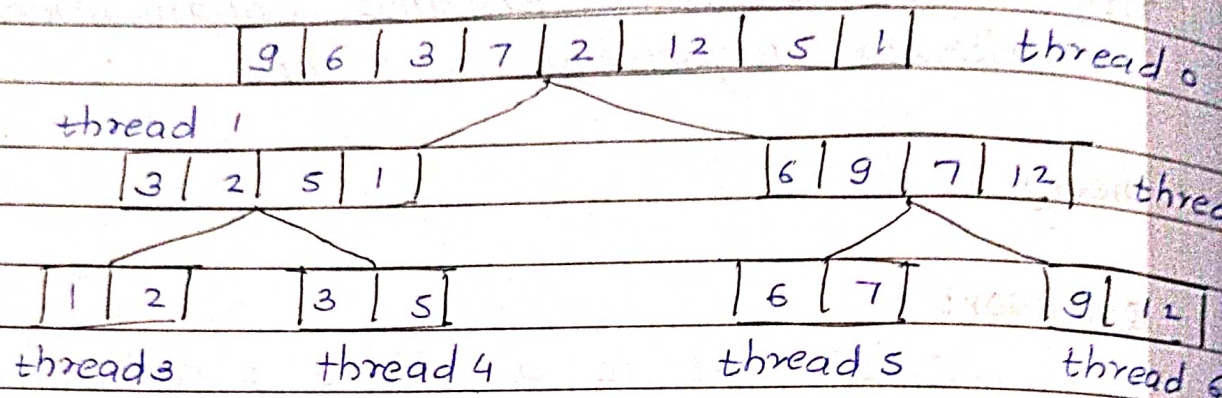 9 6 3 7 2 12 5 1 thread 0
thread 1
3 2 5 1 6 9 7 12
1 2 3 5 6 7 9 12
thread 3 thread 4 thread 5 thread